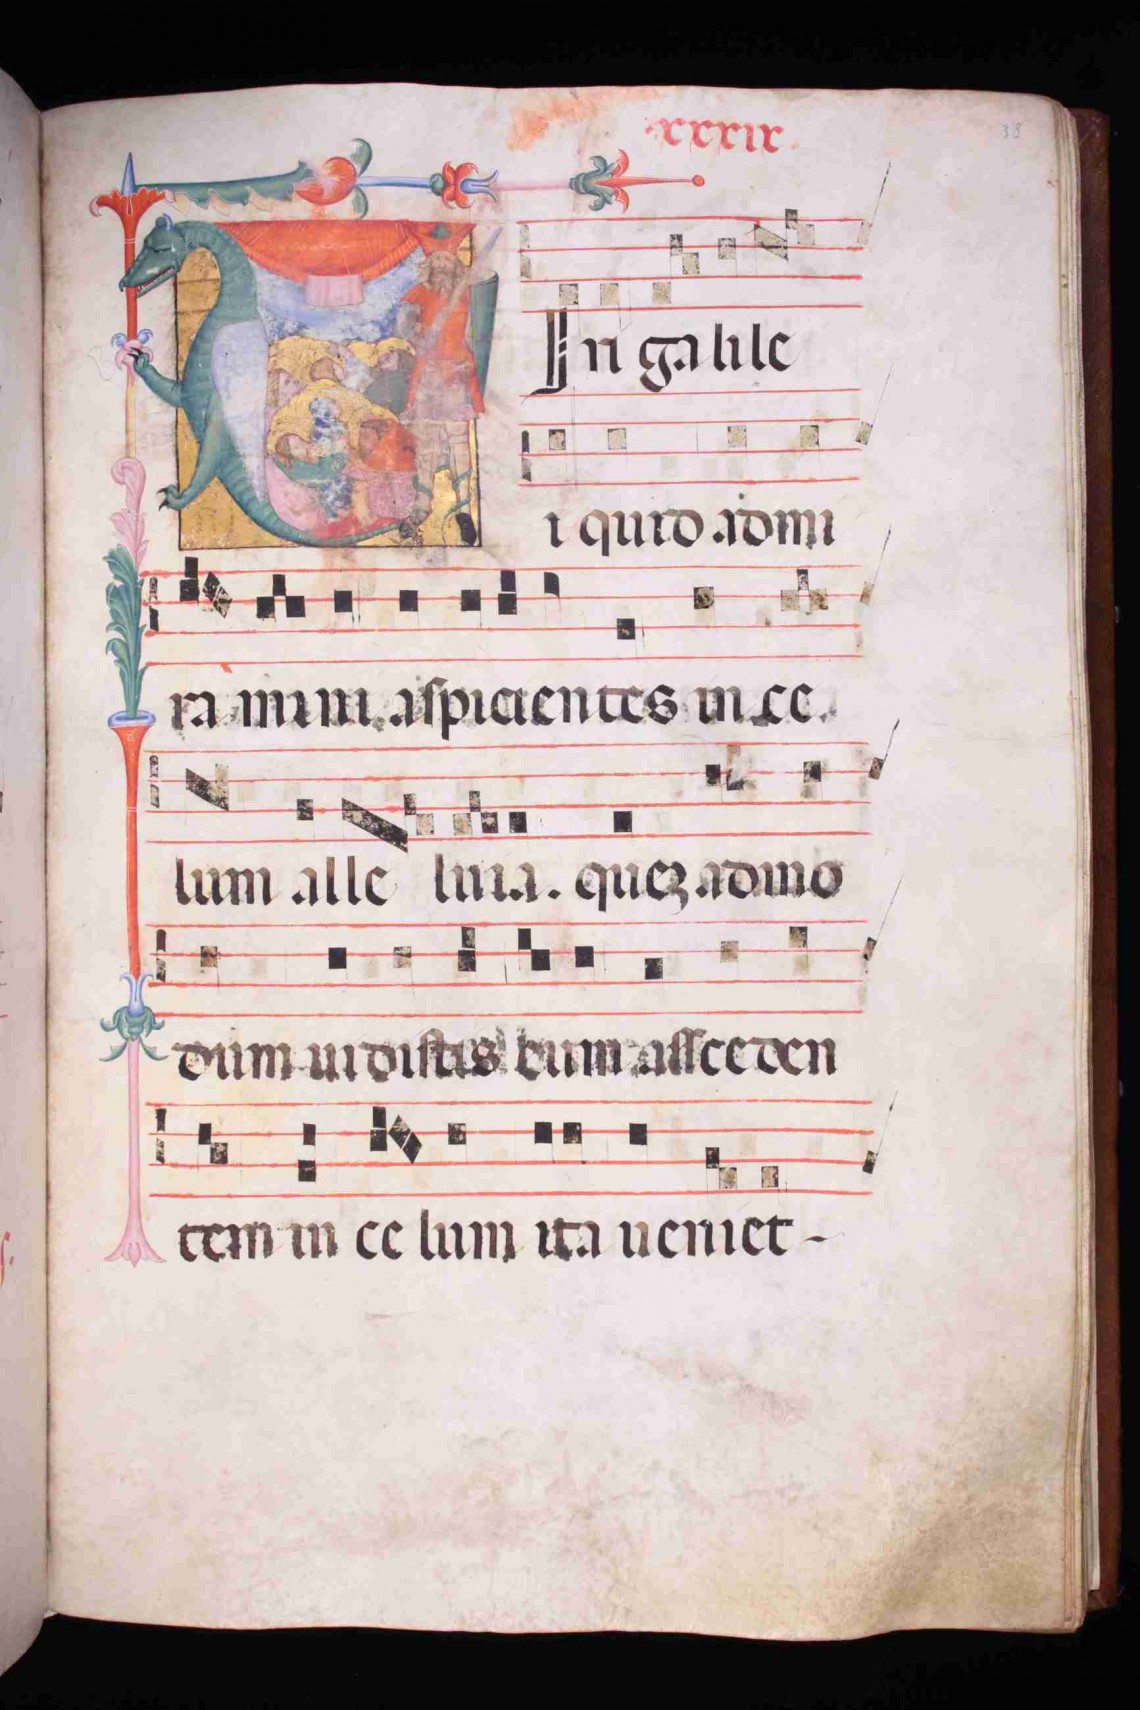 xxxix
38
In galile
i quid admi
ramini. aspicientes in ce
lum alle luia. quez admo
dum uidistis eum assceden
tem in ce lum ita ueniet -